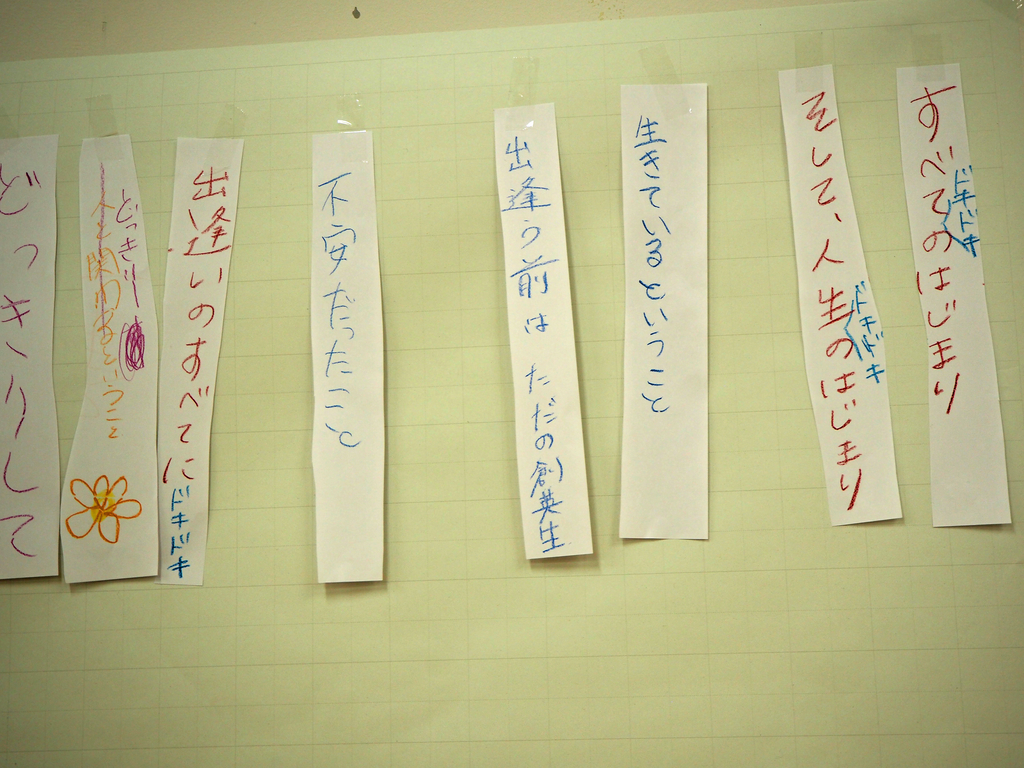 すべてのはじまり
ドキドキ
そして、人生のはじまり
ドキドキ
生きているということ
出逢う前は ただの創英生
不安だったこと
出逢いのすべてに
ドキドキ
どっきり
人と関わるということ
どっきりして